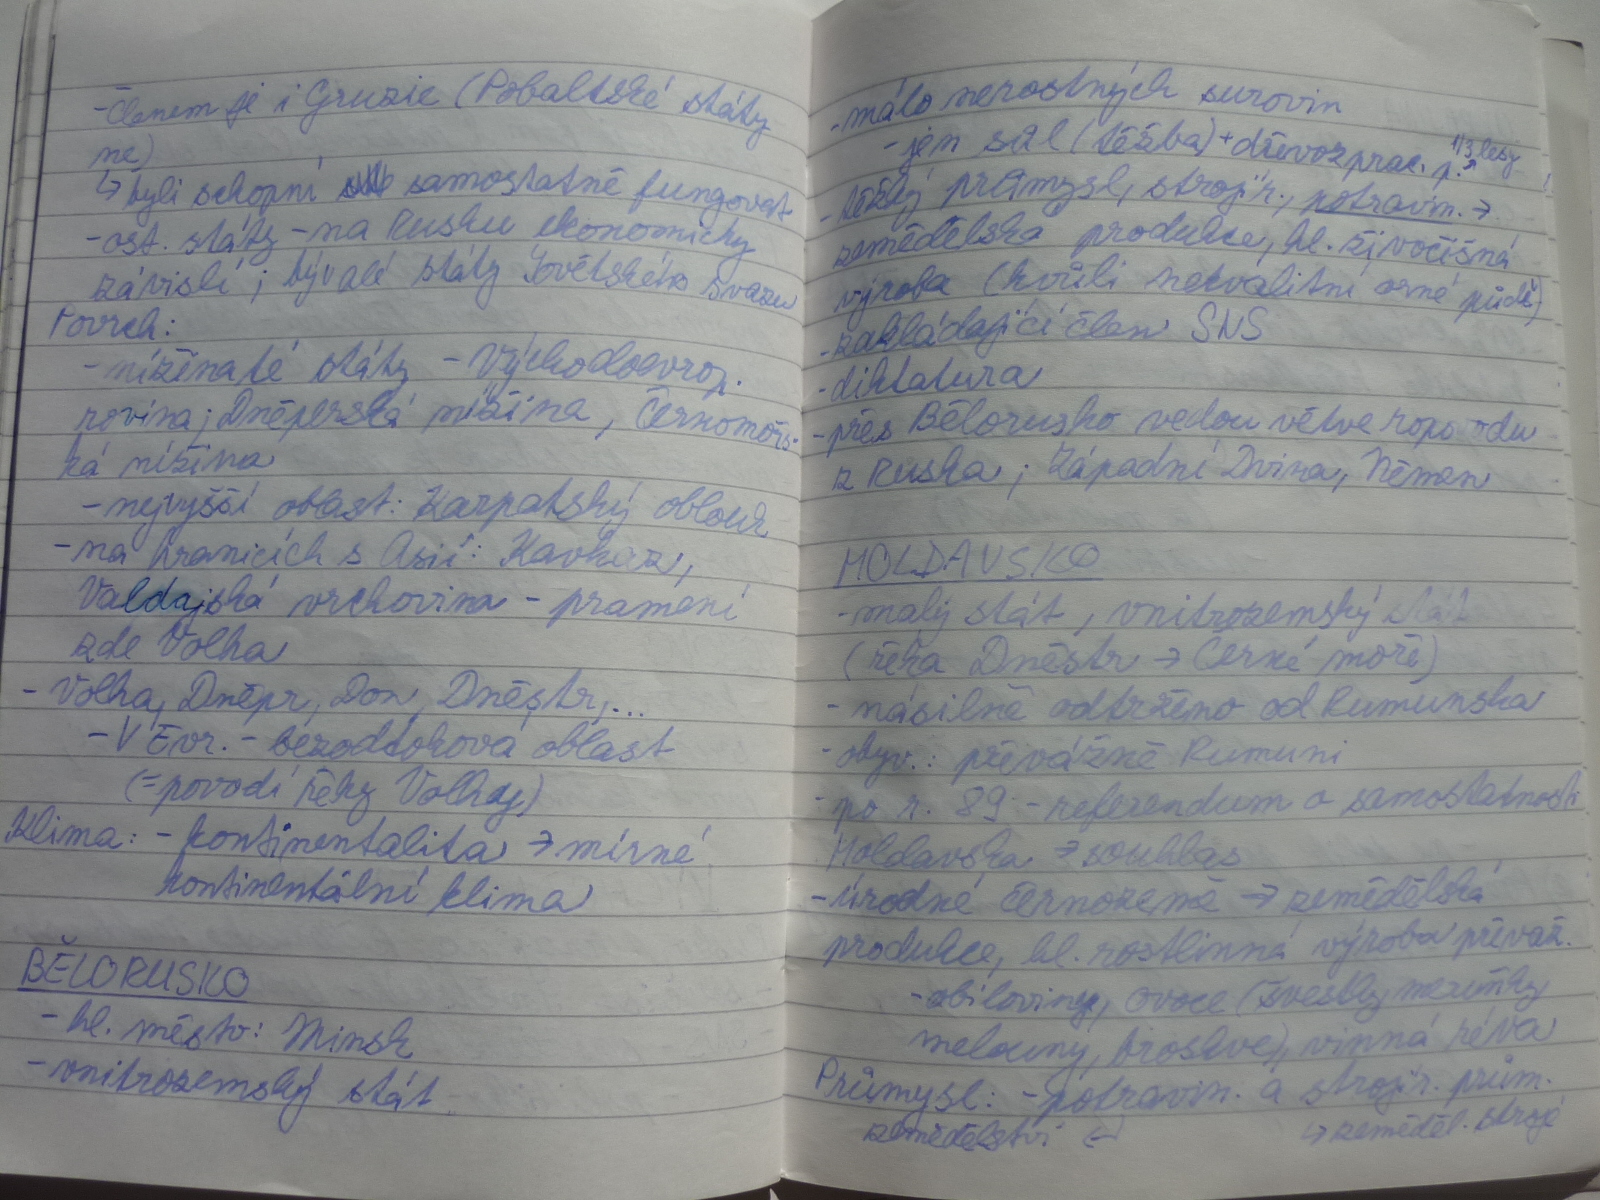 - členem je i Gruzie (Pobaltské státy
ne)
↳ byli schopní samostatně fungovat
- ost. státy - na Rusku ekonomicky
závislé; bývalé státy Sovětského svazu
Povrch:
- nížinaté státy - Východoevrop.
rovina; Dněperská nížina, Černomořs-
ká nížina
- nejvyšší oblast: Karpatský oblouk
- na hranicích s Asií: Kavkaz,
Valdajská vrchovina - pramení
zde Volha
- Volha, Dněpr, Don, Dněstr,...
- V Evr. - bezodtoková oblast
(= povodí řeky Volhy)
Klima: - kontinentalita → mírné
kontinentální klima
BĚLORUSKO
- hl. město: Minsk
- vnitrozemský stát
- málo nerostných surovin
- jen sůl (těžba) + dřevozprac. p. ↗ 1/3 lesy
- těžký průmysl, strojír., potravin. →
zemědělská produkce, hl. živočišná
výroba (kvůli nekvalitní orné půdě)
- zakládající člen SNS
- diktatura
- přes Bělorusko vedou větve ropovodu
z Ruska; Západní Dvina, Němen
MOLDAVSKO
- malý stát, vnitrozemský stát
(řeka Dněstr → Černé moře)
- násilně odtrženo od Rumunska
- obyv.: převážně Rumuni
- po r. 89 - referendum o samostatnosti
Moldavska → souhlas
- úrodné černozemě → zemědělská
produkce, hl. rostlinná výroba převaž.
- obiloviny, ovoce (švestky, meruňky
melouny, broskve), vinná réva
Průmysl: - potravin. a strojír. prům.
zemědělství ↩ ↳ zeměděl. stroje